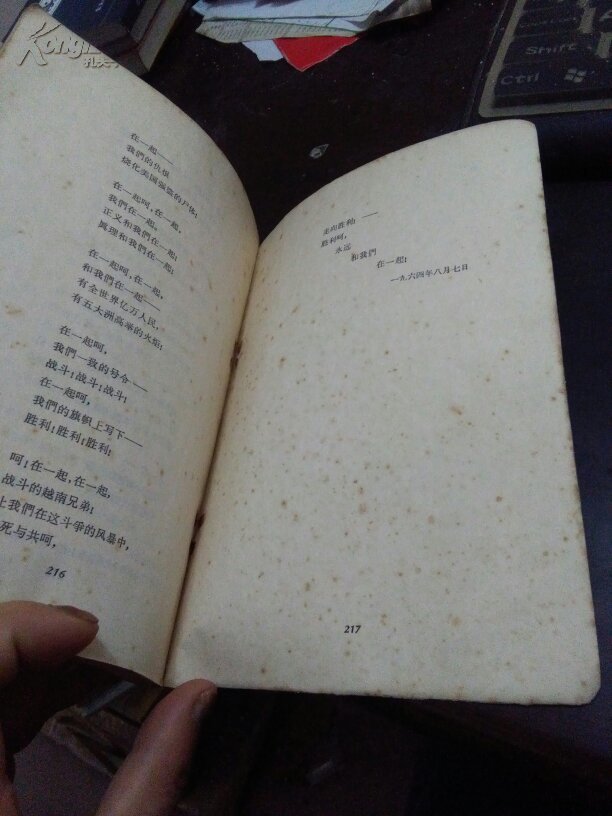 在一起——
我們的仇恨
燒化美国强盜的尸体!
在一起呵,在一起,
我們在一起!
正义和我們在一起!
眞理和我們在一起!
在一起呵,在一起,
和我們在一起——
有全世界亿万人民,
有五大洲高举的火焰!
在一起呵,
我們一致的号令——
战斗!战斗!战斗!
在一起呵,
我們的旗帜上写下——
胜利!胜利!胜利!
呵!在一起,在一起,
战斗的越南兄弟!
让我們在这斗爭的风暴中,
死与共呵,
216
走向胜利! ——
胜利呵,
永远
和我們
在一起!
一九六四年八月七日
217
Shift
Ctrl
孔夫子